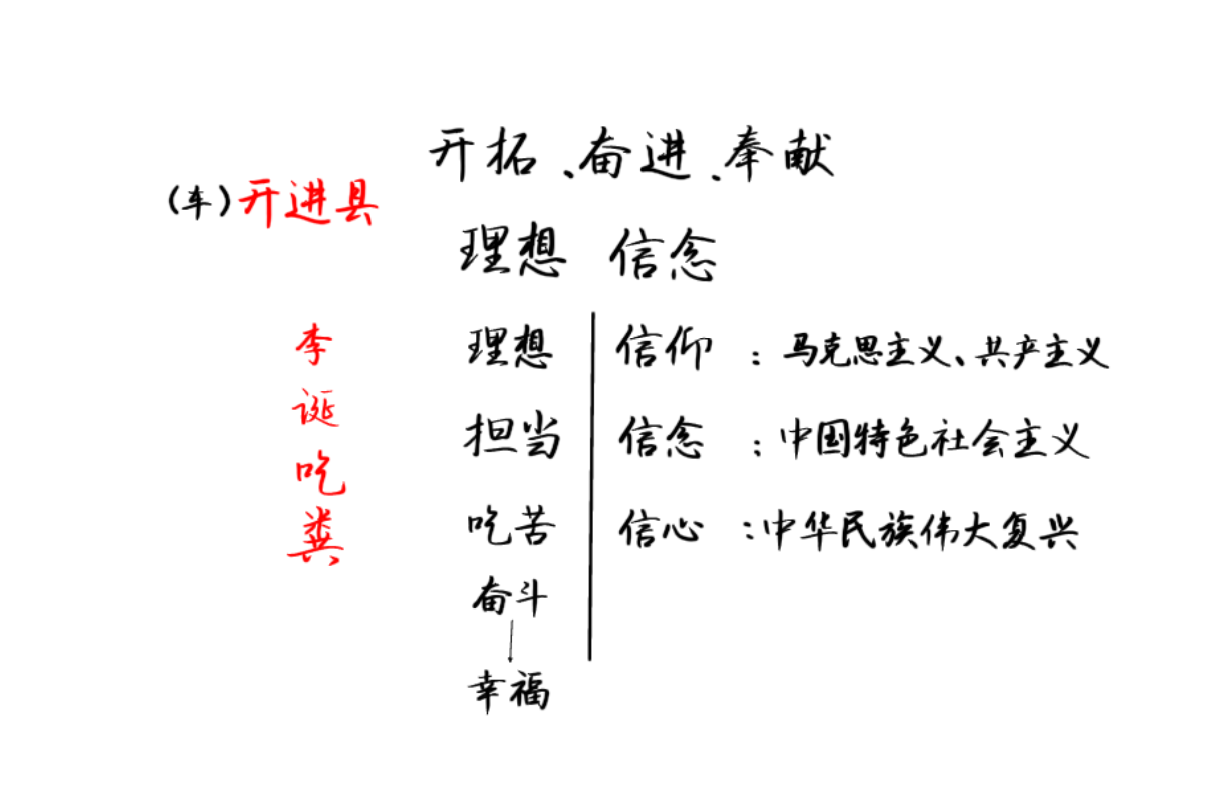 开拓、奋进、奉献
(车)开进县
理想 信念
李
诞
吃
粪
理想
担当
吃苦
奋斗
幸福
信仰：马克思主义、共产主义
信念：中国特色社会主义
信心：中华民族伟大复兴